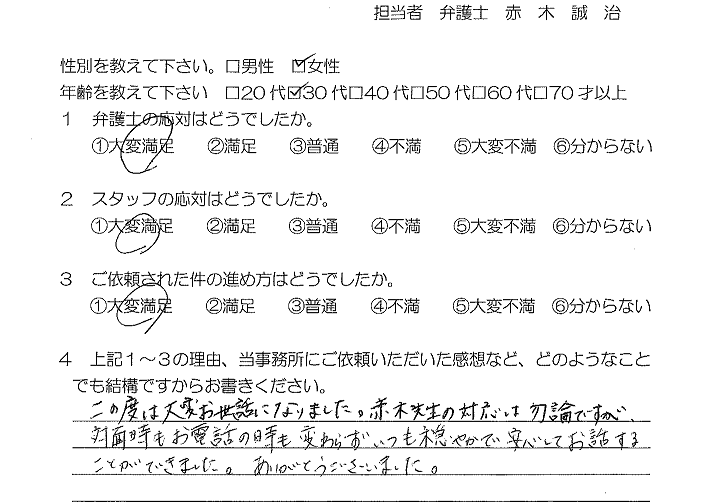 担当者 弁護士 赤 木 誠 治
性別を教えて下さい。□男性 ☑女性
年齢を教えて下さい □20代☑30代□40代□50代□60代□70才以上
1 弁護士の応対はどうでしたか。
①大変満足 ②満足 ③普通 ④不満 ⑤大変不満 ⑥分からない
2 スタッフの応対はどうでしたか。
①大変満足 ②満足 ③普通 ④不満 ⑤大変不満 ⑥分からない
3 ご依頼された件の進め方はどうでしたか。
①大変満足 ②満足 ③普通 ④不満 ⑤大変不満 ⑥分からない
4 上記1~3の理由、当事務所にご依頼いただいた感想など、どのようなこと
でも結構ですからお書きください。
この度は大変お世話になりました。赤木先生の対応は勿論ですが、
対面時もお電話の時も変わらずいつも穏やかで安心してお話する
ことができました。ありがとうございました。